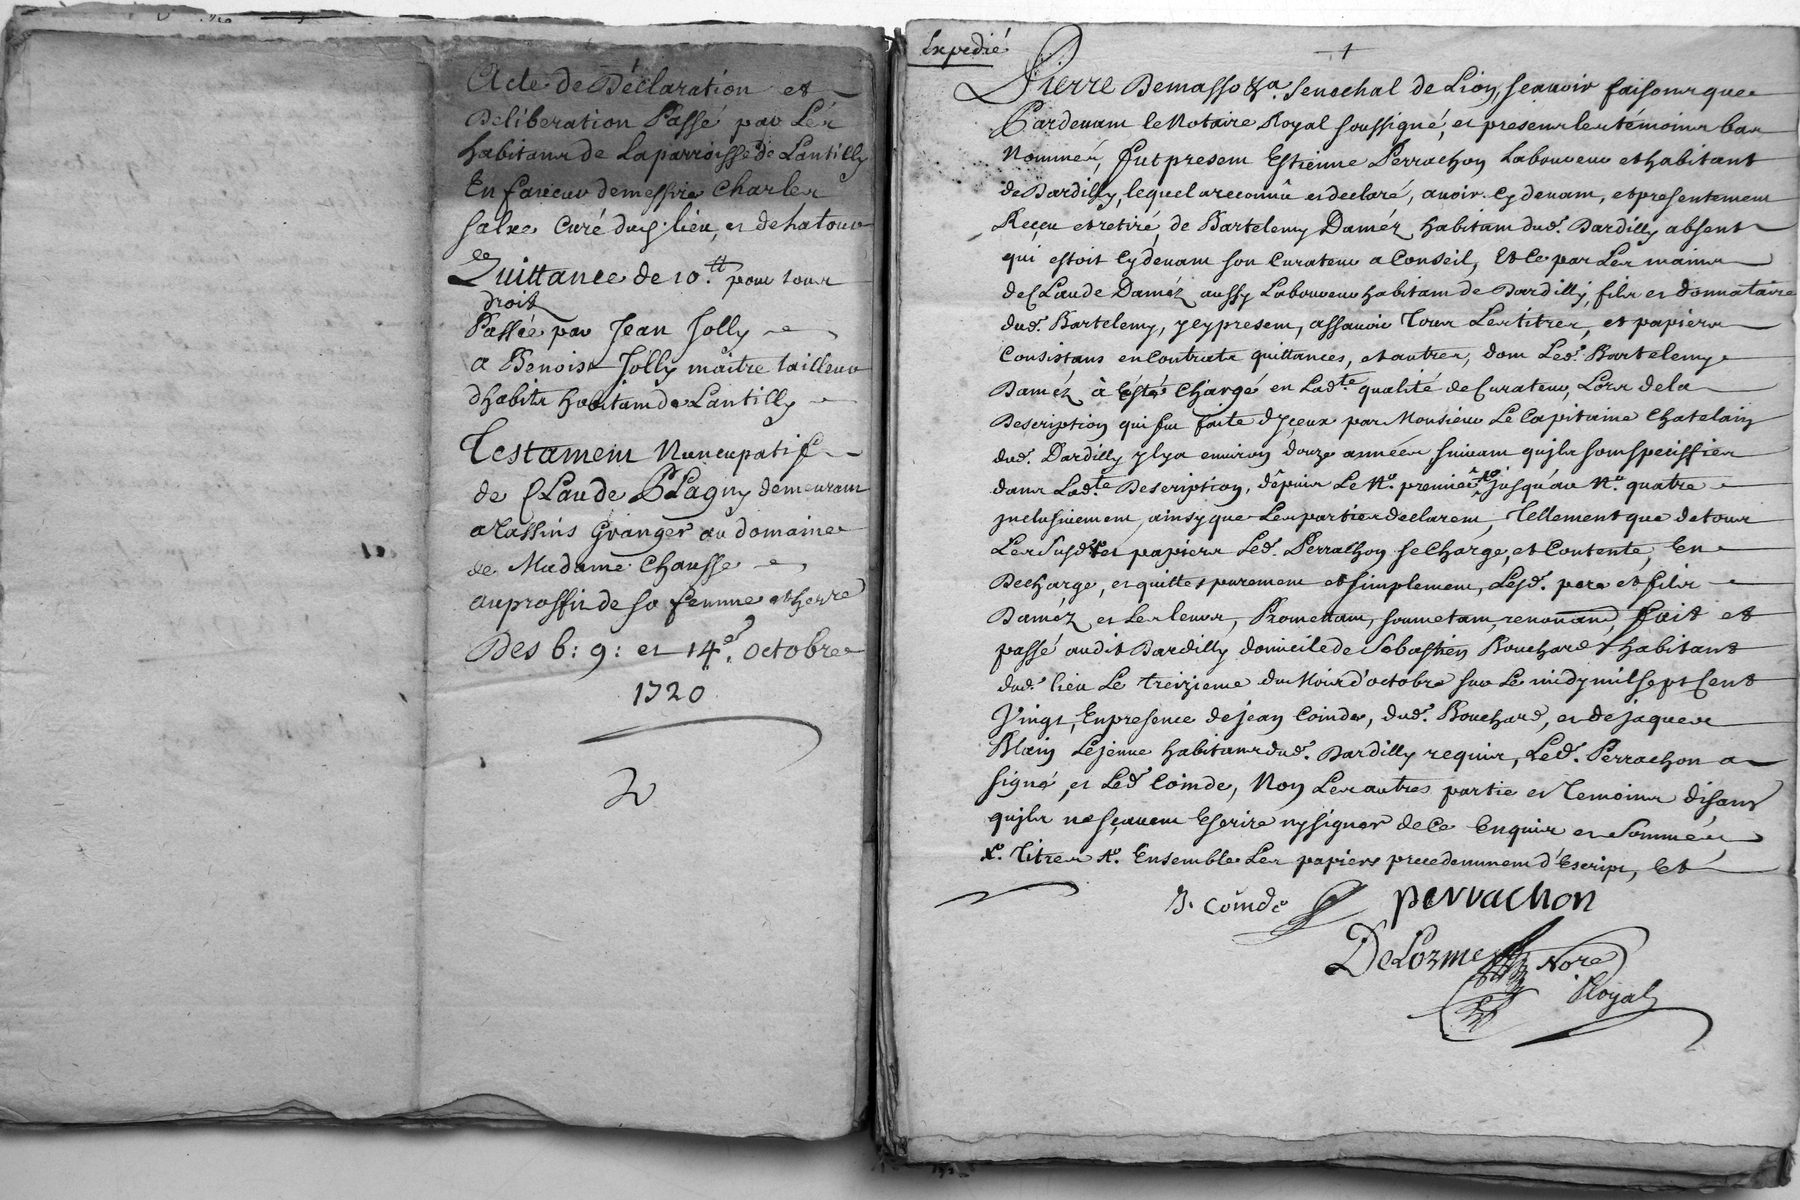 Acte de Déclaration et
Deliberation Passé par Les
habitans de La parroisse de Lantilly
En faveur de messire Charles
Curé dud. lieu, et de hatour
Quittance de 10.tt pour tous
droits
Passée par Jean Jolly
a Benoist Jolly maître tailleur
dhabits habitant de Lantilly
Testament Nuncupatif
de Claude Plagny demeurant
a Tassins Granger au domaine
de Madame Chausse
au proffit de sa femme et herre
Des 6: 9: et 14es. Octobre
1720
2
Expedié
Pierre Demasso &a. Senechal de Lion, scavoir faisons que
Pardevant le Notaire Royal soussigné, et presens les témoins bas
Nommés, fut present Estienne Perrachon Laboureur et habitant
de Dardilly, lequel a reconnû et declaré, avoir cy devant, et presentement
Reçeu et retiré, de Bartelemy Daméz habitant dud. Dardilly absent
qui estoit cy devant son Curateur a Conseil, Et ce par Les mains
de Claude Daméz aussy Laboureur habitant de Dardilly, fils et donnataire
dud. Bartelemy, jcy present, assavoir Tous Les titres, et papiers
Consistans en Contrats quittances, et autres, dont Led. Bartelemy
Daméz à ésté Chargé en Ladte. qualité de Curateur, Lors de la
Description qui fut faite d'jceux par Monsieur Le Capitaine Chatelain
dud. Dardilly jl y a environ douze années suivant qujls sont speciffiés
dans Ladte. Description, dêpuis Le No. premier jusqu'au No. quatre
jnclusivement, ainsy que Les parties declarent, Tellement que de tous
Les susd. et papiers Led. Perrachon se Charge, et Contente, En
Decharge, et quitte purement et simplement, Lesd. pere et fils
Daméz et Les leurs, Promettant, soumetant, renonçant, fait et
passé audit Dardilly domicile de Sebastien Bouchard habitant
dud. lieu Le treizieme du Mois d'octobre sur Le midy mil sept Cent
Vingt, En presence de jean Coindé, dud. Bouchard, et de jaques
Blain Lejeune habitans dud. Dardilly requis, Led. Perrachon a
signé, et Led. Coindé, Non Les autres partie et Temoins disans
qujls ne sçavent Escrire ny signer de ce Enquis et Sommés
Titres Ensembles Les papiers precedemment d'Escript, Et
J. Coindé perrachon
DeLorme Nore
Royal